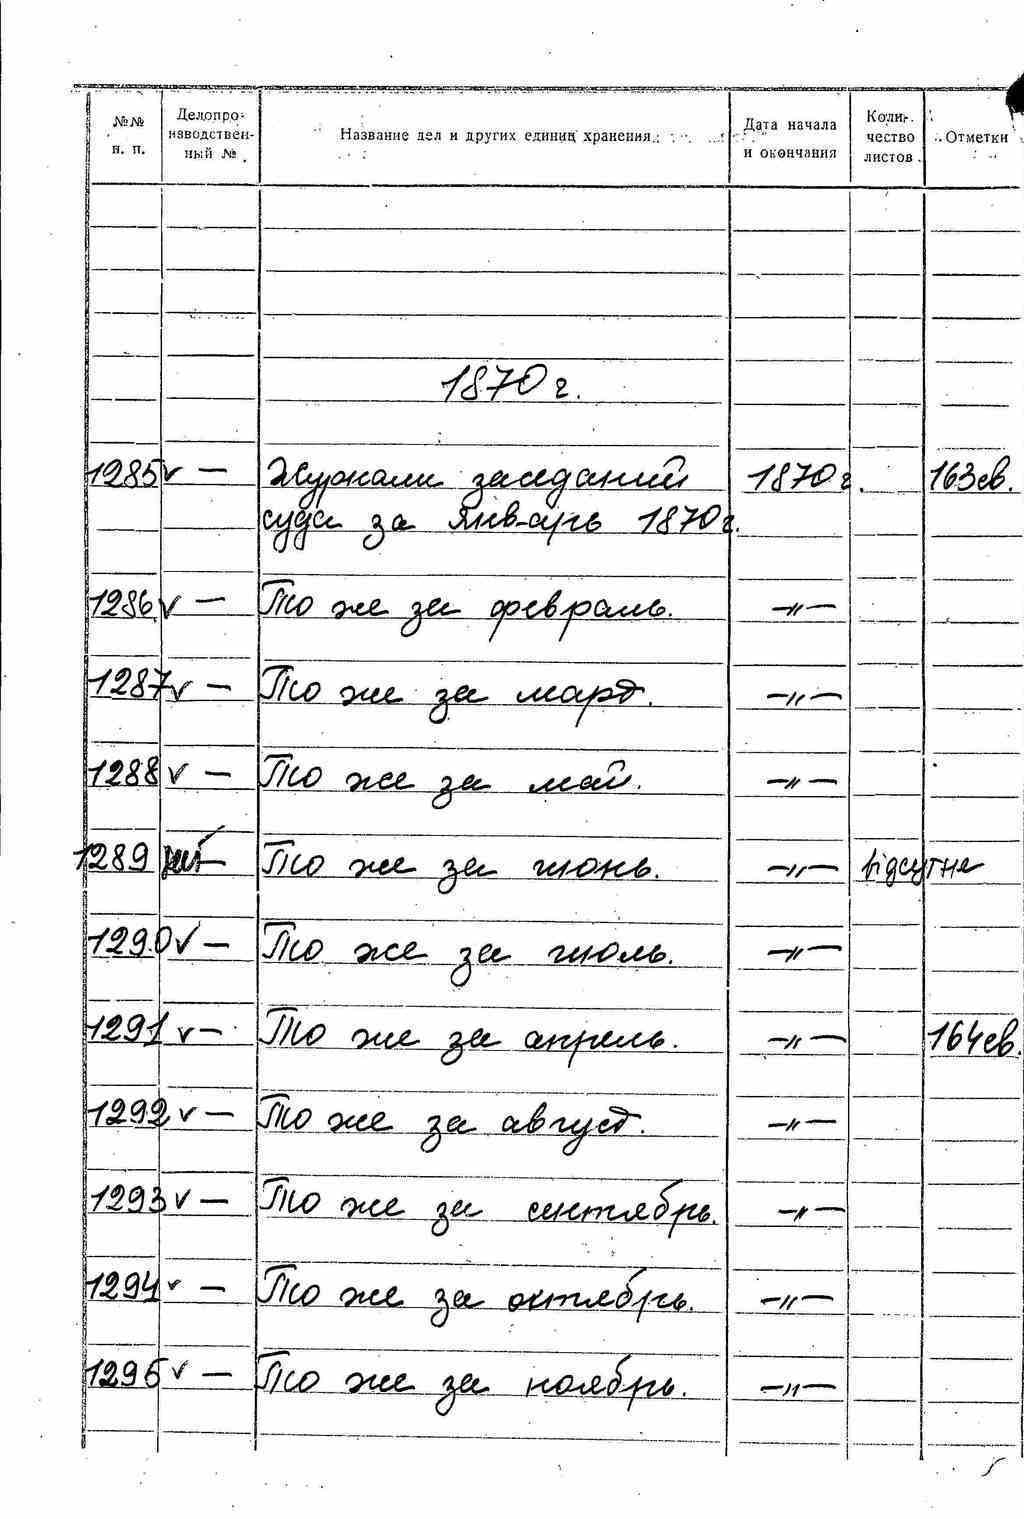 №№ н. п.
Делопроизводственный №
Название дел и других единиц хранения
Дата начала и окончания
Количество листов
Отметки
1870 г.
1285 v — Журнали заседаний 1870 г. 163св.
суда за январь 1870 г.
1286 v — То же за февраль. —"—
1287 v — То же за март. —"—
1288 v — То же за май. —"—
1289 — То же за июнь. —"— відсутня
1290 v — То же за июль. —"—
1291 v — То же за апрель. —"— 164св.
1292 v — То же за август. —"—
1293 v — То же за сентябрь. —"—
1294 v — То же за октябрь. —"—
1295 v — То же за ноябрь. —"—